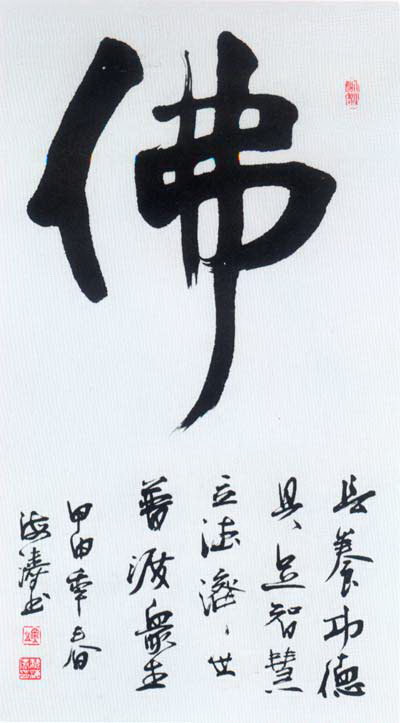 佛
長養功德
具足智慧
立法濟世
普渡眾生
甲申年春
海濤書